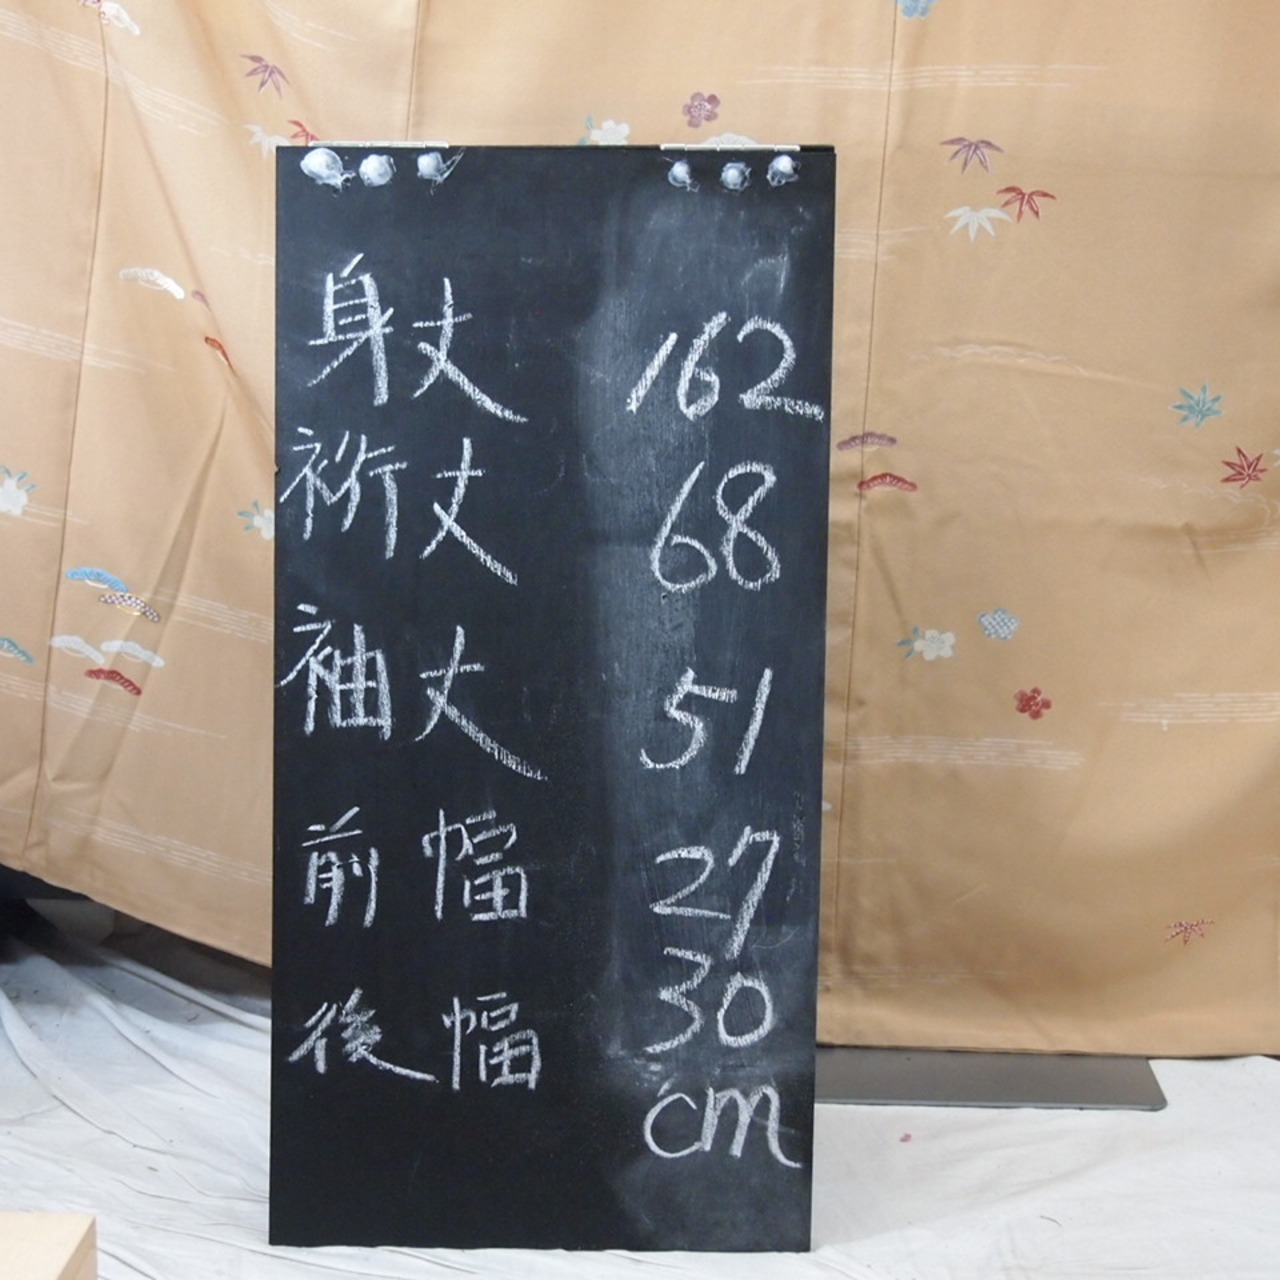 身丈 162
裄丈 68
袖丈 51
前幅 27
後幅 30
cm